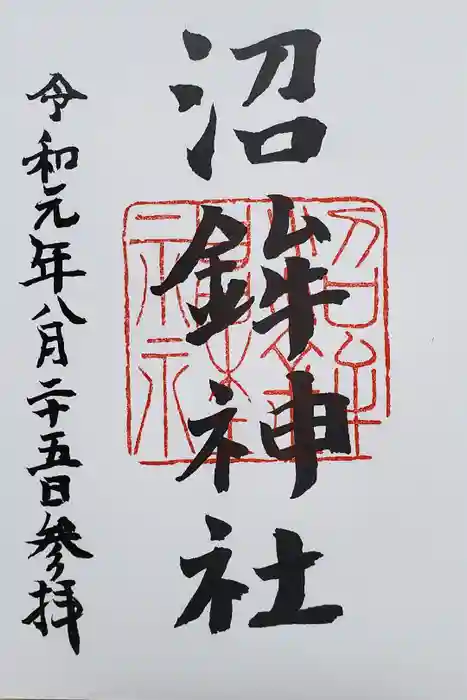 沼鉾神社
令和元年八月二十五日参拝